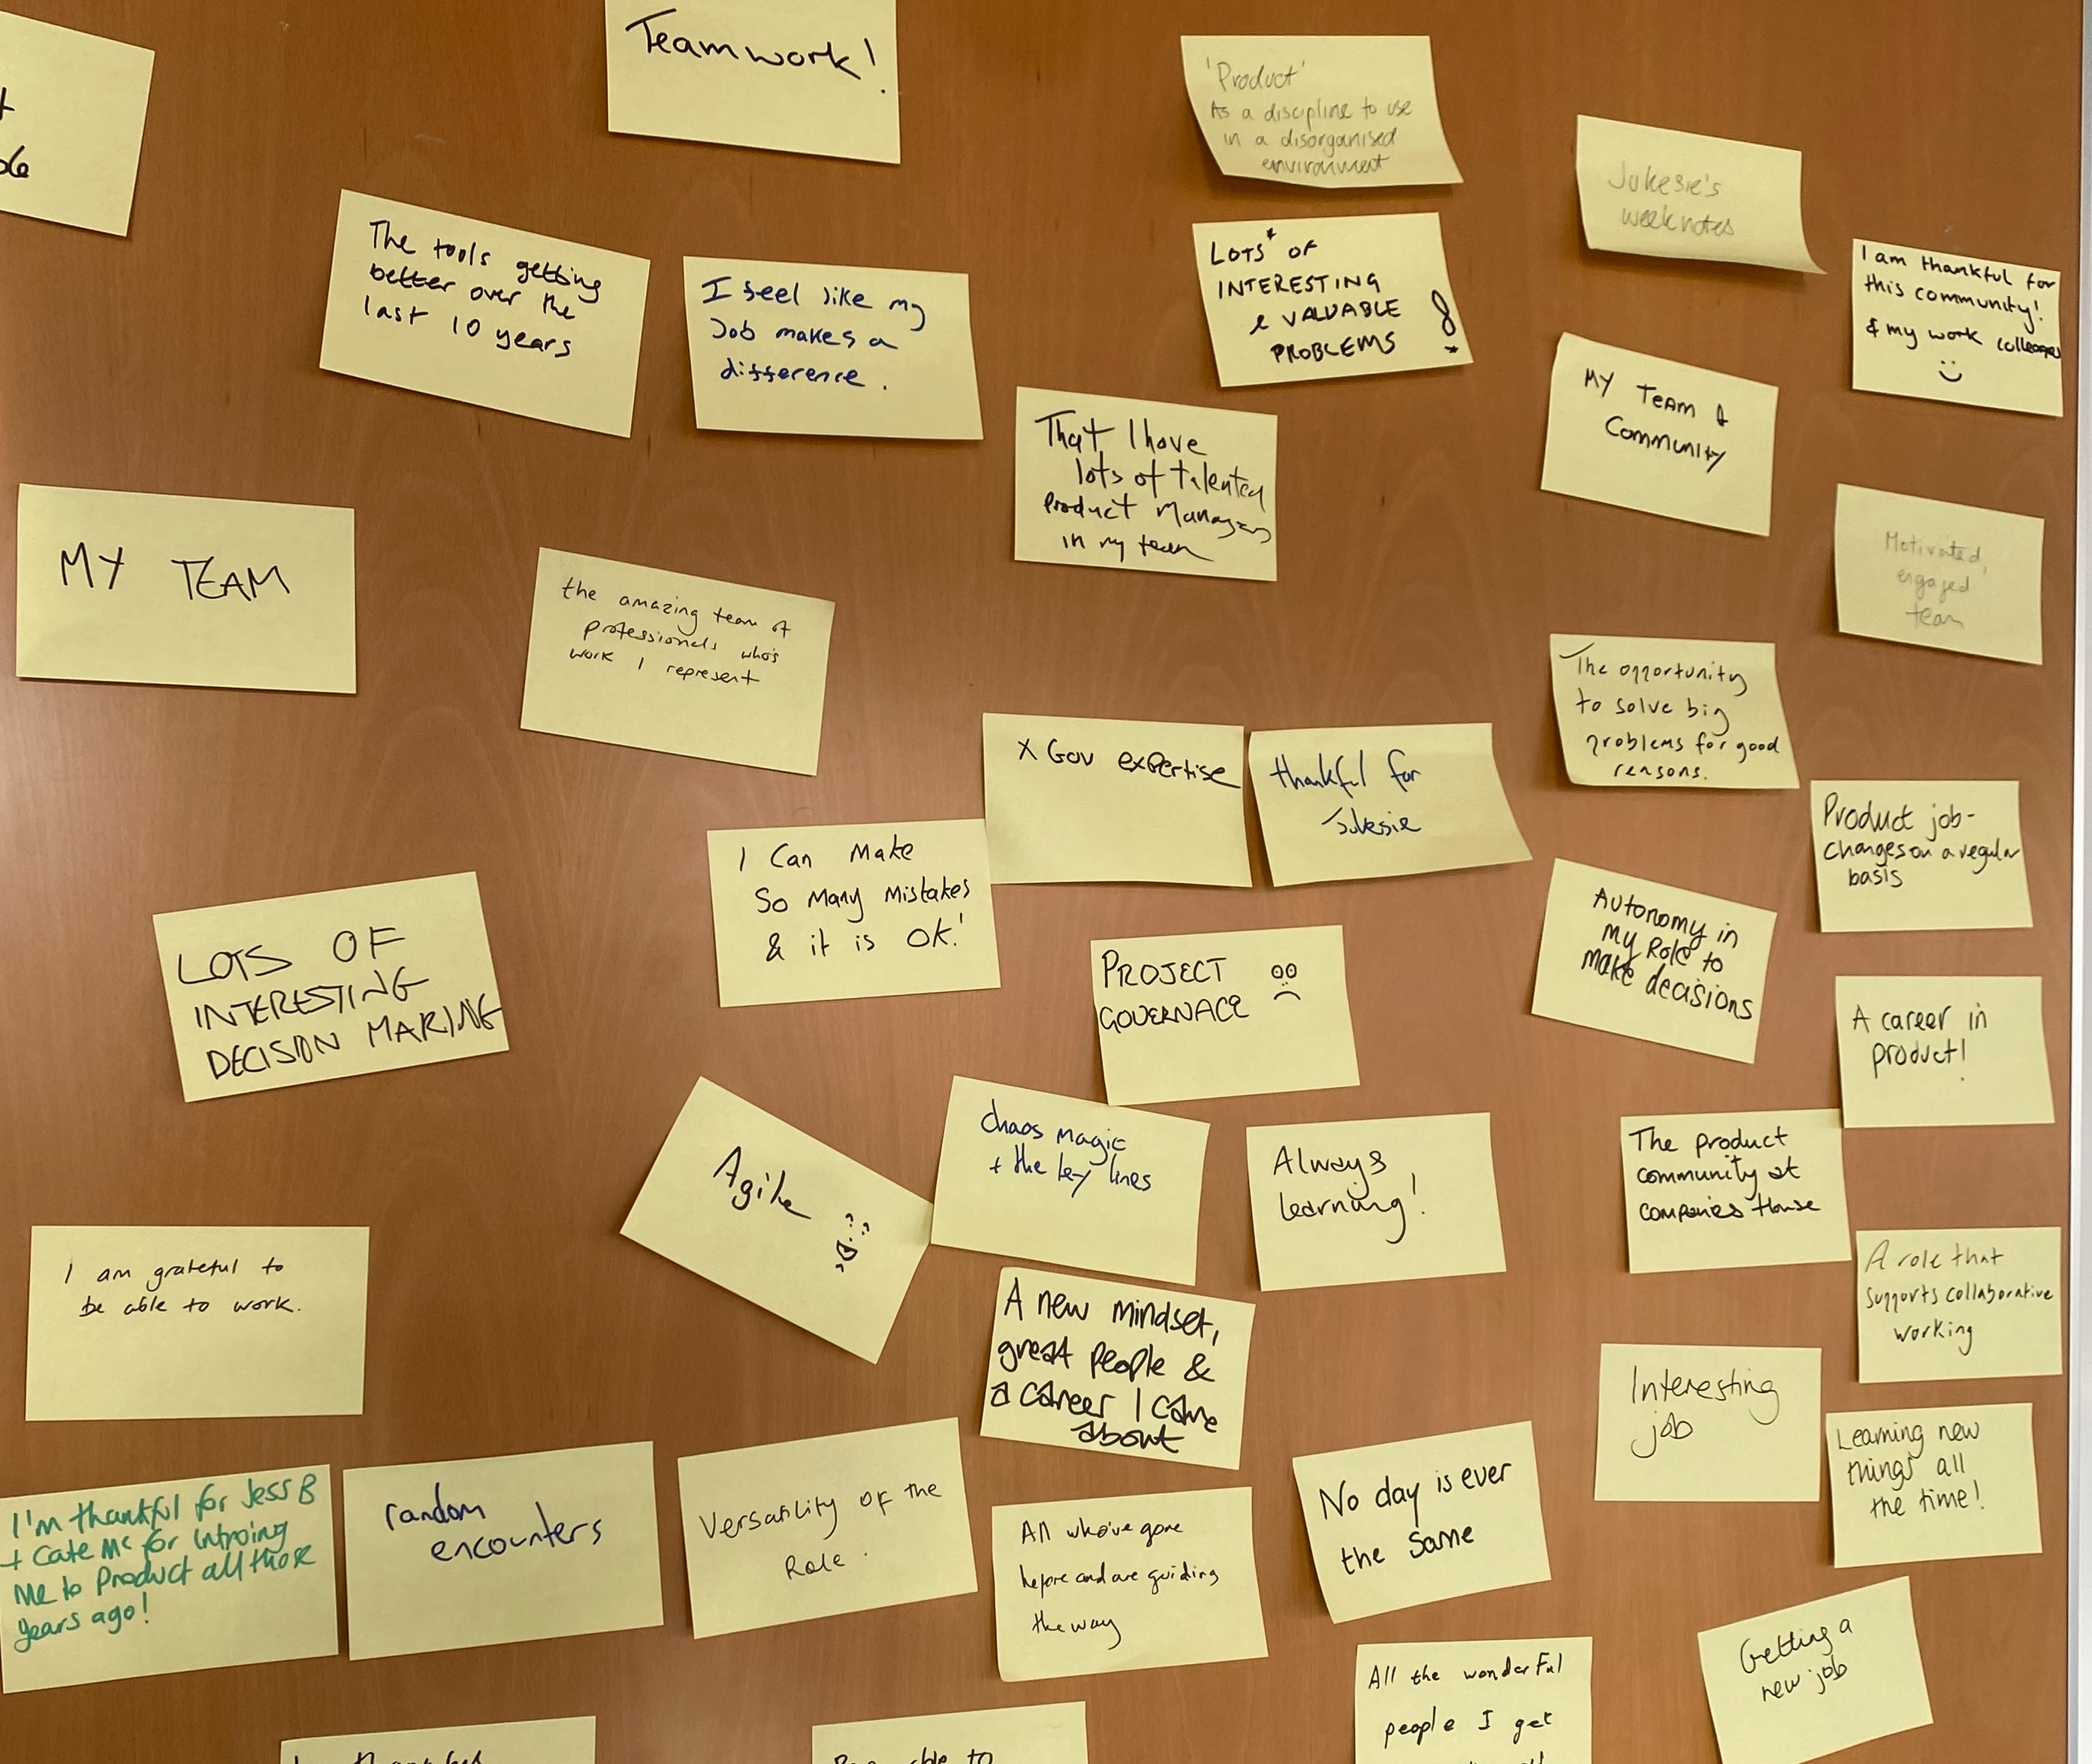 Teamwork!
'Product'
As a discipline to use
in a disorganised
environment
Jukesie's
weeknotes
The tools getting
better over the
last 10 years
I feel like my
Job makes a
difference.
LOTS* OF
INTERESTING
& VALUABLE
PROBLEMS !
I am thankful for
this community!
& my work
MY TEAM &
COMMUNITY
That I have
lots of talented
product managers
in my team
MY TEAM
the amazing team of
professionals who's
work I represent
Motivated,
engaged
team
The opportunity
to solve big
problems for good
reasons.
X Gov expertise
thankful for
Jukesie
Product job-
changes on a regular
basis
I Can Make
So Many Mistakes
& it is OK!
LOTS OF
INTERESTING
DECISION MAKING
Autonomy in
my Role to
make decisions
PROJECT
GOVERNACE
A career in
product!
Agile
chaos magic
+ the ley lines
Always
learning!
The product
community at
companies House
I am grateful to
be able to work.
A role that
supports collaborative
working
A new mindset,
great people &
a career I came
about
Interesting
job
Learning new
things all
the time!
I'm thankful for Jess B
+ Cate Mc for introing
me to Product all those
years ago!
random
encounters
Versatility of the
Role.
All who've gone
before and are guiding
the way
No day is ever
the same
Getting a
new job
All the wonderful
people I get